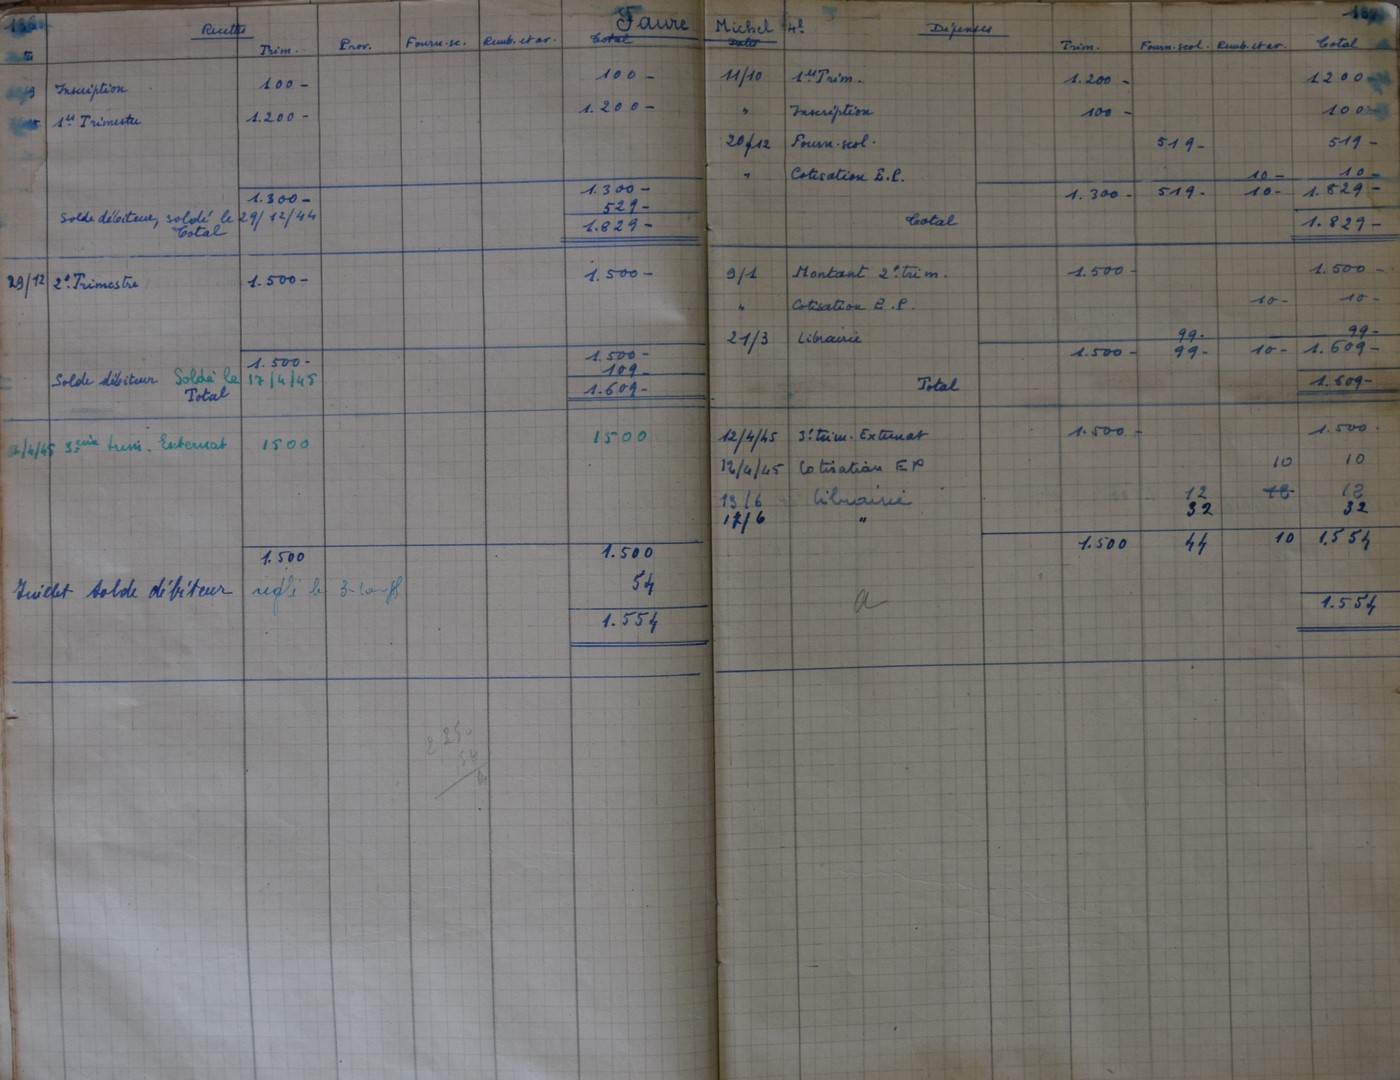 Faure Michel 4b
Recettes Trim. Prov. Fourn-sc. Remb. et av. Total
Inscription 100- 100-
1er Trimestre 1.200- 1.200-
1.300- 1.300-
529-
Solde débiteur, soldé le 29/12/44
Total 1.829-
29/12 2e Trimestre 1.500- 1.500-
1.500- 1.500-
Solde débiteur Soldé le 17/4/45 109-
Total 1.609-
/4/45 3ème trim. Externat 1500 1500
1.500 1.500
Juillet Solde débiteur réglé le 54
1.554
Date Dépenses Trim. Fourn-scol. Remb. et av. Total
11/10 1er Trim. 1.200- 1200-
" Inscription 100- 100-
20/12 Fourn-scol. 519- 519-
" Cotisation E.P. 10- 10-
1.300- 519- 10- 1.829-
Total 1.829-
9/1 Montant 2e trim. 1.500- 1.500-
" Cotisation E.P. 10- 10-
21/3 Librairie 99- 99-
1.500- 99- 10- 1.609-
Total 1.609-
12/4/45 3e trim. Externat 1.500- 1.500-
12/4/45 Cotisation EP 10 10
13/6 Librairie 12 12 12
17/6 " 32 32
1.500 44 10 1.554
a 1.554